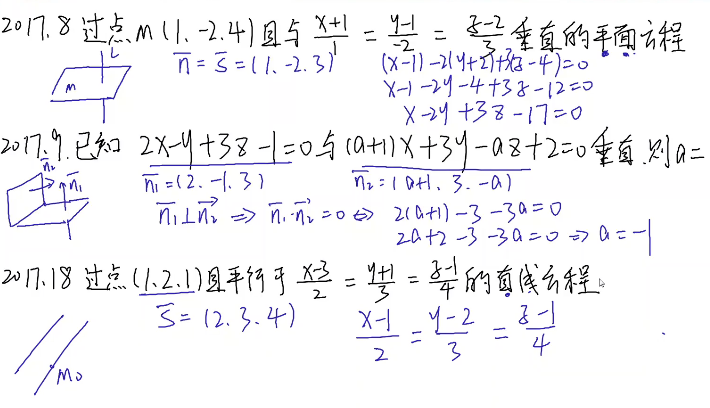 2017.8 过点M(1.-2.4)且与 x+1/1 = y-1/-2 = z-2/3 垂直的平面方程
n̄ = s̄ = (1.-2.3) (x-1)-2(y+2)+3(z-4)=0
L
M
x-1-2y-4+3z-12=0
x-2y+3z-17=0
2017.9.已知 2x-y+3z-1=0与(a+1)x+3y-az+2=0垂直.则a=
n̄₂ n̄₁ n̄₁=(2.-1.3) n̄₂=(a+1.3.-a)
n̄₁⊥n̄₂ ⇒ n̄₁·n̄₂=0 ⇔ 2(a+1)-3-3a=0
2a+2-3-3a=0 ⇒ a=-1
2017.18 过点(1.2.1)且平行于 x-3/2 = y+1/3 = z-1/4 的直线方程
s̄=(2.3.4) x-1/2 = y-2/3 = z-1/4
M₀